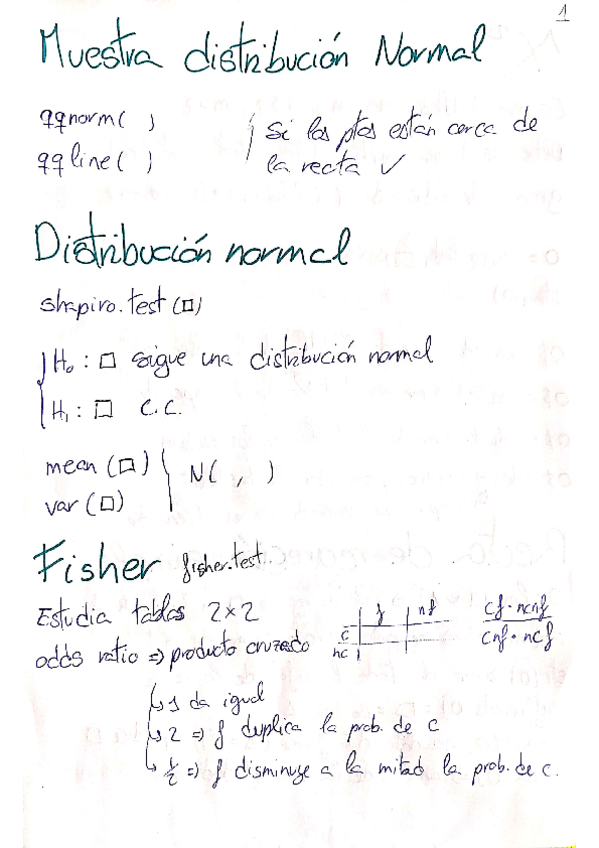 1
Muestra distribución Normal
qqnorm( )
qqline( )
Si los ptos están cerca de
la recta ✓
Distribución normal
shapiro.test(□)
H₀ : □ sigue una distribución normal
H₁ : □ c.c.
mean(□)
var(□)
N( , )
Fisher fisher.test
Estudia tablas 2×2
odds ratio => producto cruzado
f nf
c
nc
cf · ncnf
cnf · ncf
↳ 1 da igual
↳ 2 => f duplica la prob. de c
↳ ½ => f disminuye a la mitad la prob. de c.